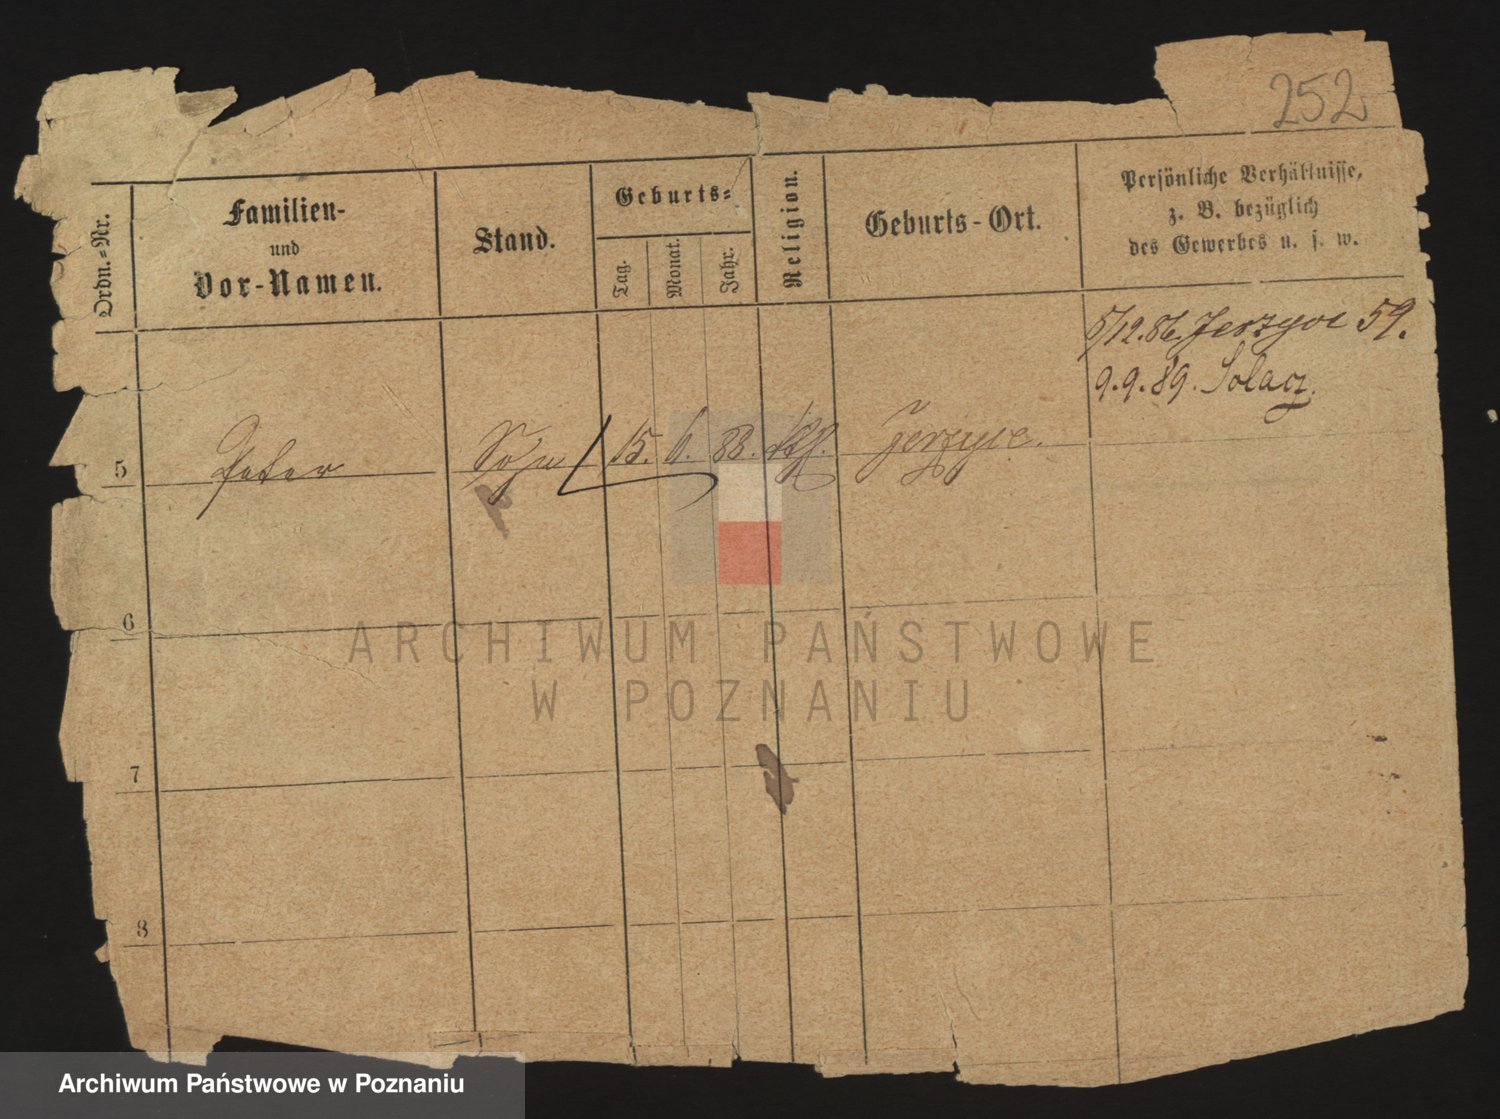 252
Ordn.=Nr.
Familien-
und
Vor-Namen.
Stand.
Geburts=
Tag.
Monat.
Jahr.
Religion.
Geburts-Ort.
Persönliche Verhältnisse,
z. B. bezüglich
des Gewerbes u. s. w.
5/12.86. Jerzyce 59.
9.9.89. Solacz.
5 Peter Sohn 15. 6. 88. kth. Jerzyce.
6
7
8
ARCHIWUM PAŃSTWOWE
W POZNANIU
Archiwum Państwowe w Poznaniu